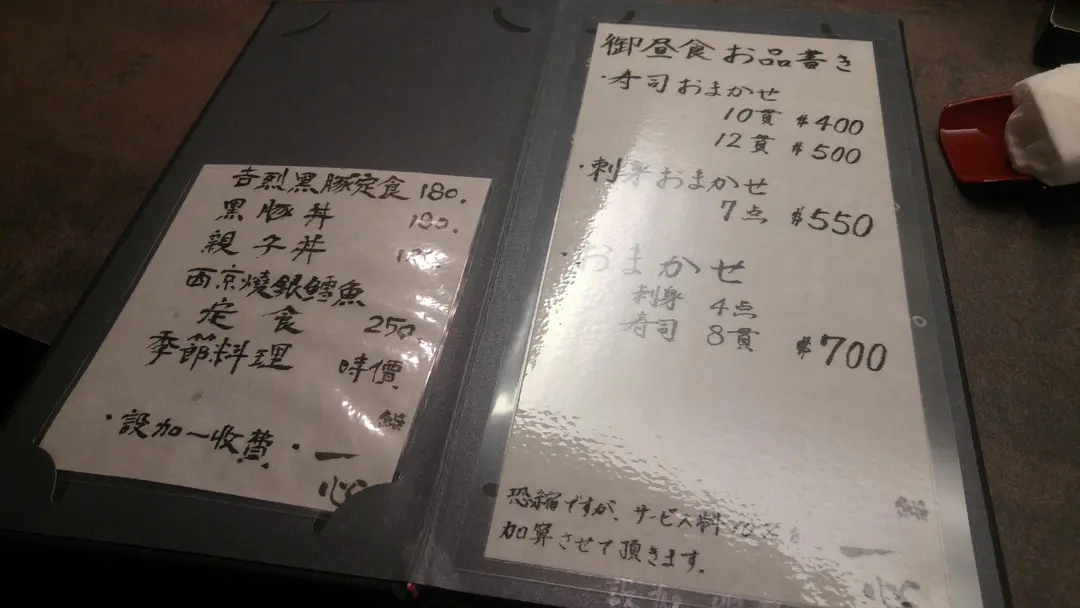 吉烈黒豚定食 180.
黒豚丼 180.
親子丼
西京燒銀鱈魚
定食 250.
季節料理 時價
・設加一收費・
一
心
御昼食 お品書き
・寿司おまかせ
10貫 $400
12貫 $500
・刺身おまかせ
7点 $550
・おまかせ
刺身 4点
寿司 8貫 $700
恐縮ですが、サービス料10%を
加算させて頂きます。
一
心